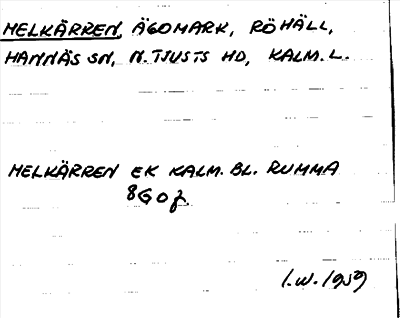 MELKÄRREN, ÄGOMARK, RÖHÄLL,
HANNÄS SN, N. TJUSTS HD, KALM. L.
MELKÄRREN EK KALM. BL. RUMMA
8G0j.
I.W. 1959